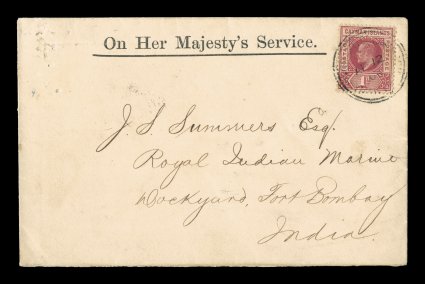 On Her Majesty's Service.
CAYMAN ISLANDS
1D
J. S. Summers Esq.
Royal Indian Marine
Dockyard, Fort Bombay
India.